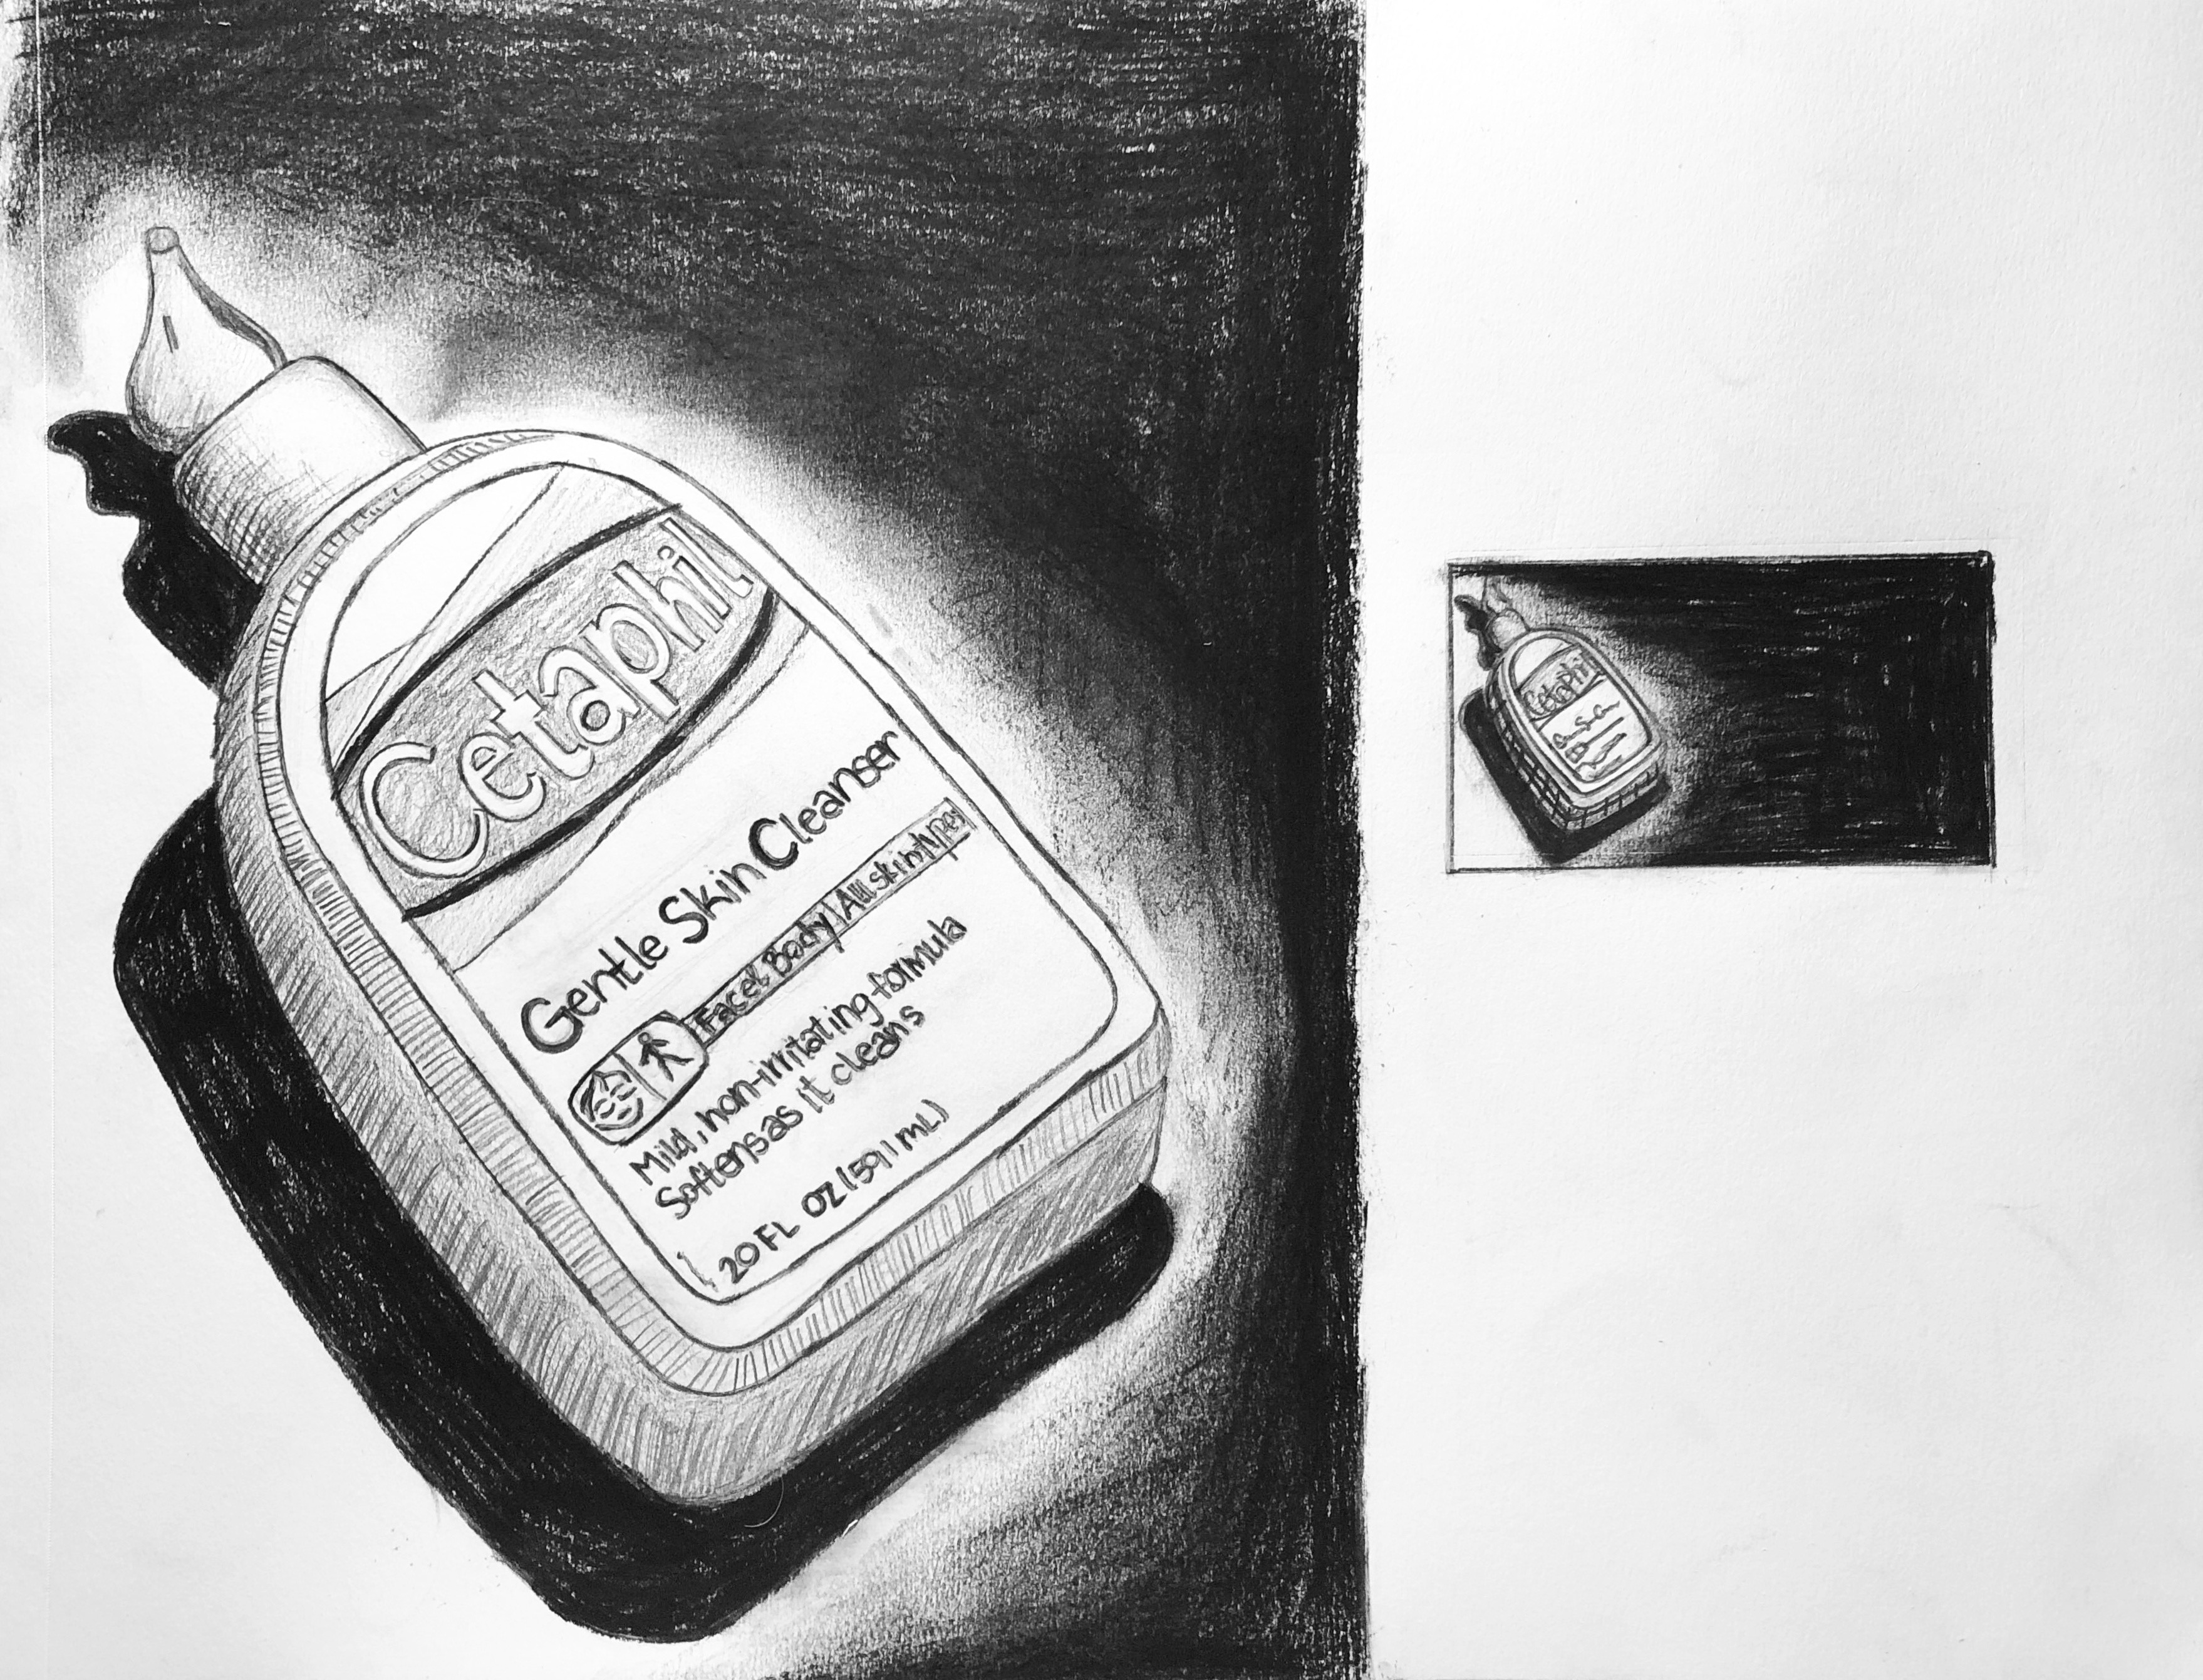 Cetaphil
Gentle Skin Cleanser
Face & Body | All skin types
Mild, non-irritating formula
Softens as it cleans
20 FL OZ (591 mL)
Cetaphil